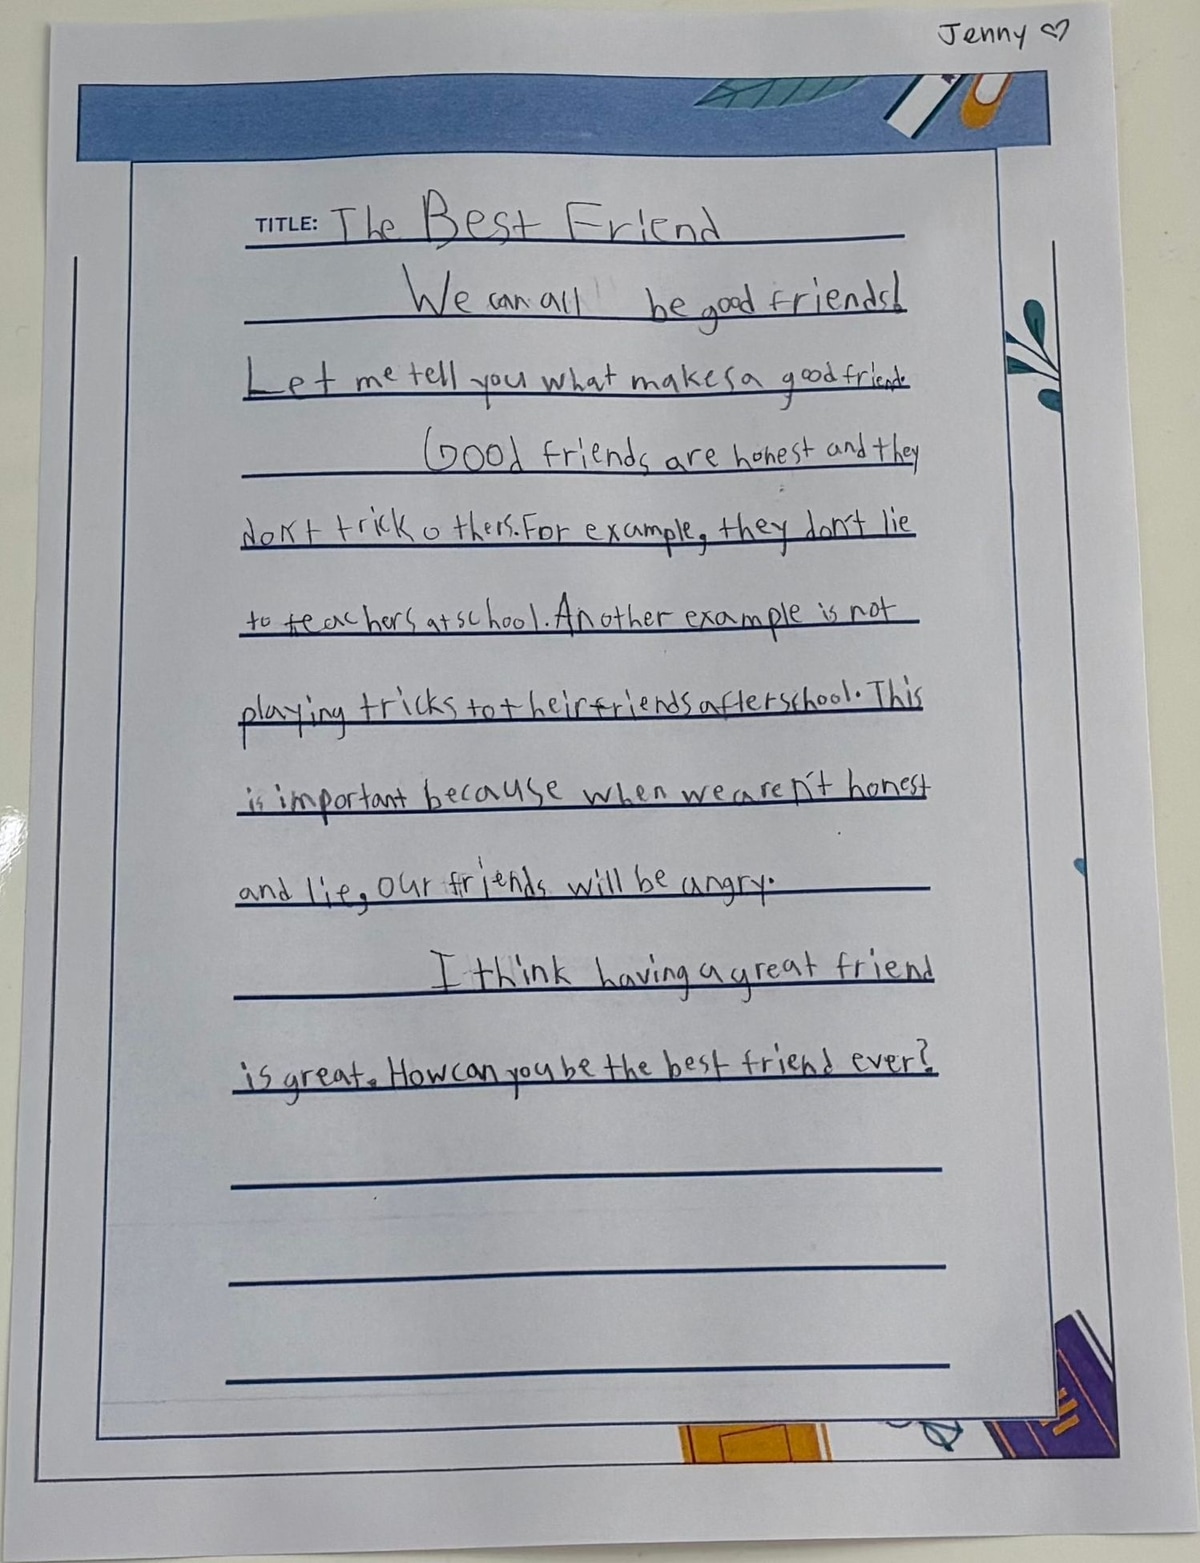 Jenny ♡
TITLE: The Best Friend
We can all be good friends!
Let me tell you what makes a good friend.
Good friends are honest and they
don't trick others. For example, they don't lie
to teachers at school. Another example is not
playing tricks to their friends after school. This
is important because when we aren't honest
and lie, our friends will be angry.
I think having a great friend
is great. How can you be the best friend ever?